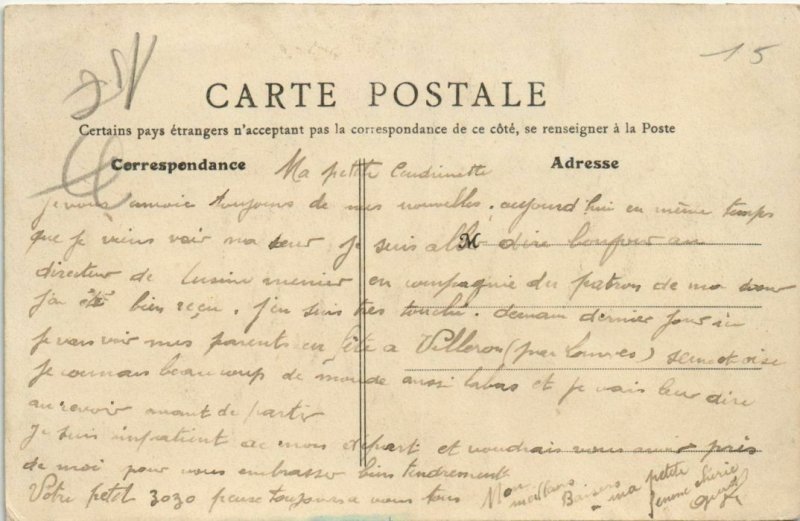 15
CARTE POSTALE
Certains pays étrangers n'acceptant pas la correspondance de ce côté, se renseigner à la Poste
Correspondance
Adresse
Ma petite
je vous envoie toujours de mes nouvelles. aujourd'hui en même temps
que je viens voir ma seur je suis allé dire bonjour au
M
directeur de Lusine menier en compagnie du patron de ma seur
j'ai été bien reçu. j'en suis très touché. demain dernier jour
je vais voir mes parents en à Villeron (par Louvres) seine et oise
je connais beaucoup de monde aussi labas et je vais leur dire
au revoir avant de partir
Je suis impatient de mon départ et voudrais vous avoir près
de moi pour vous embrasser bien tendrement
Votre petit zozo pense toujours a vous tous
Mon
Baisers
ma petite
femme chérie